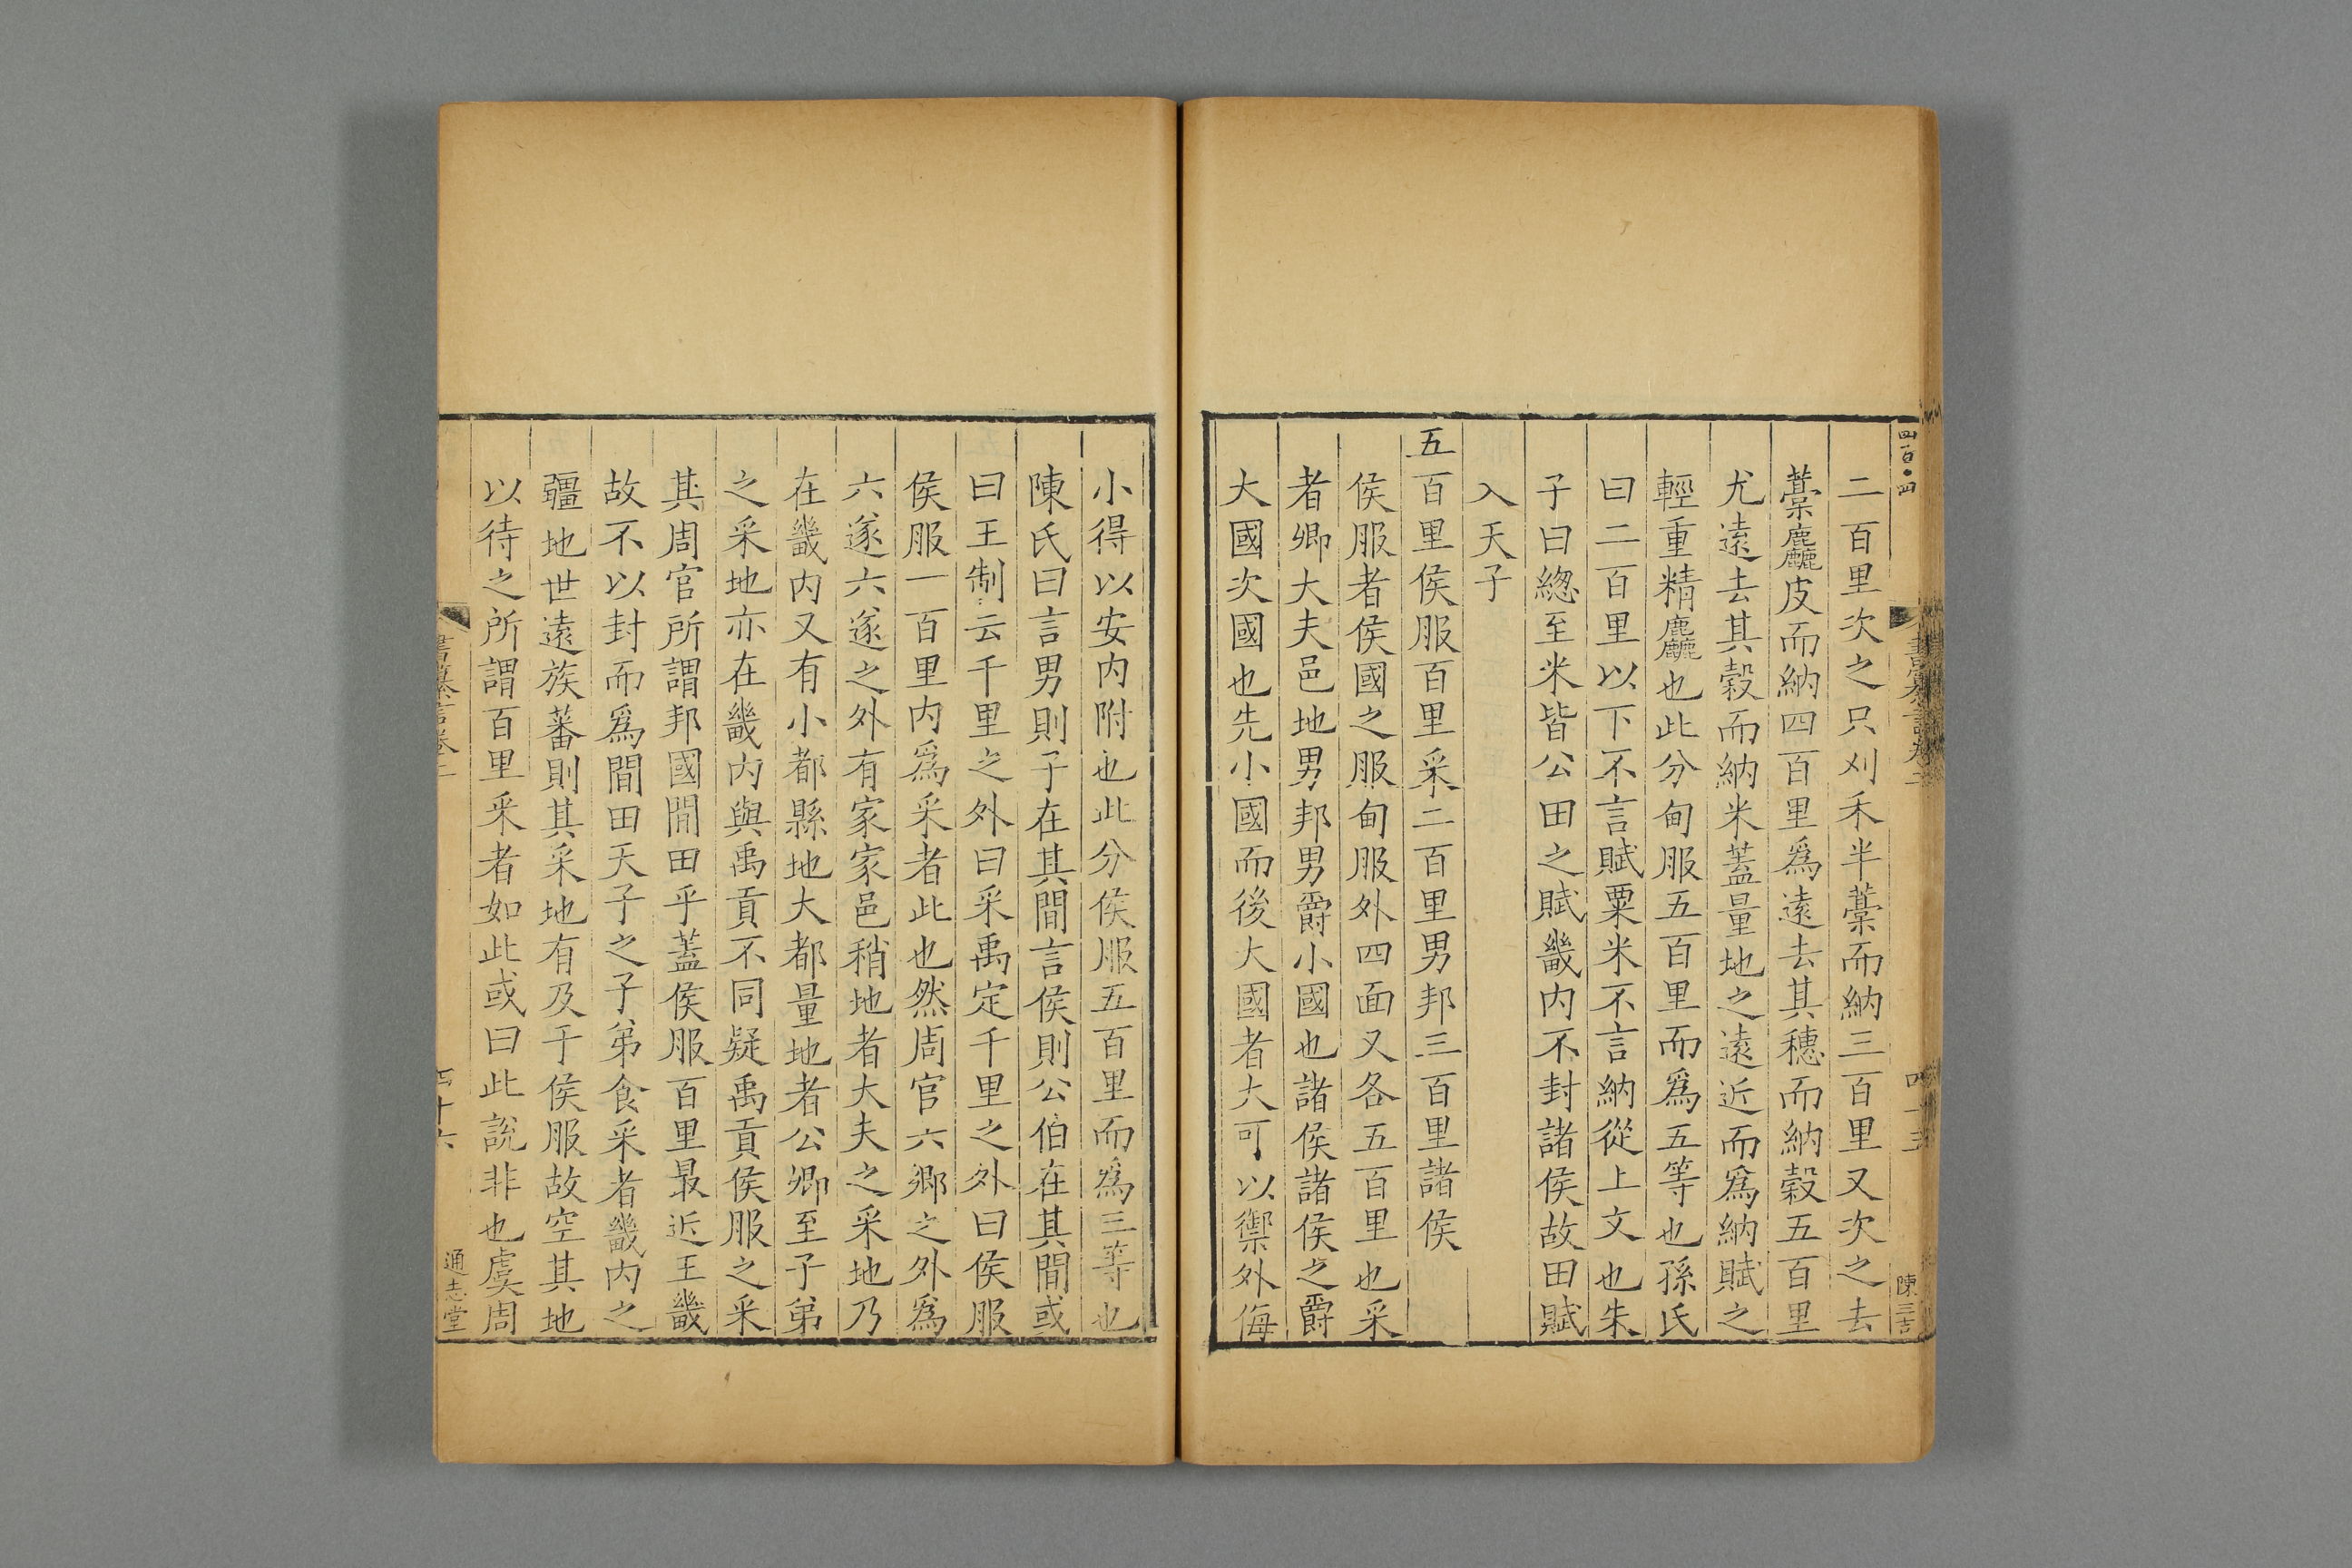 四百四
二百里次之只刈禾半藁而納三百里又次之去
藁麤皮而納四百里爲遠去其穗而納穀五百里
尤遠去其穀而納米蓋量地之遠近而爲納賦之
輕重精麤也此分甸服五百里而爲五等也孫氏
曰二百里以下不言賦粟米不言納從上文也朱
子曰緫至米皆公田之賦畿内不封諸侯故田賦
入天子
五百里侯服百里采二百里男邦三百里諸侯
侯服者侯國之服甸服外四面又各五百里也采
者卿大夫邑地男邦男爵小國也諸侯諸侯之爵
大國次國也先小國而後大國者大可以禦外侮
小得以安内附也此分侯服五百里而爲三等也
陳氏曰言男則子在其間言侯則公伯在其間或
曰王制云千里之外曰采禹定千里之外曰侯服
侯服一百里内爲采者此也然周官六鄉之外爲
六遂六遂之外有家家邑稍地者大夫之采地乃
在畿内又有小都縣地大都量地者公卿至子弟
之采地亦在畿内與禹貢不同疑禹貢侯服之采
其周官所謂邦國閒田乎蓋侯服百里最近王畿
故不以封而爲間田天子之子弟食采者畿内之
疆地世遠族蕃則其采地有及于侯服故空其地
以待之所謂百里采者如此或曰此說非也虞周
書纂言卷二
四十六
通志堂
陳三吉